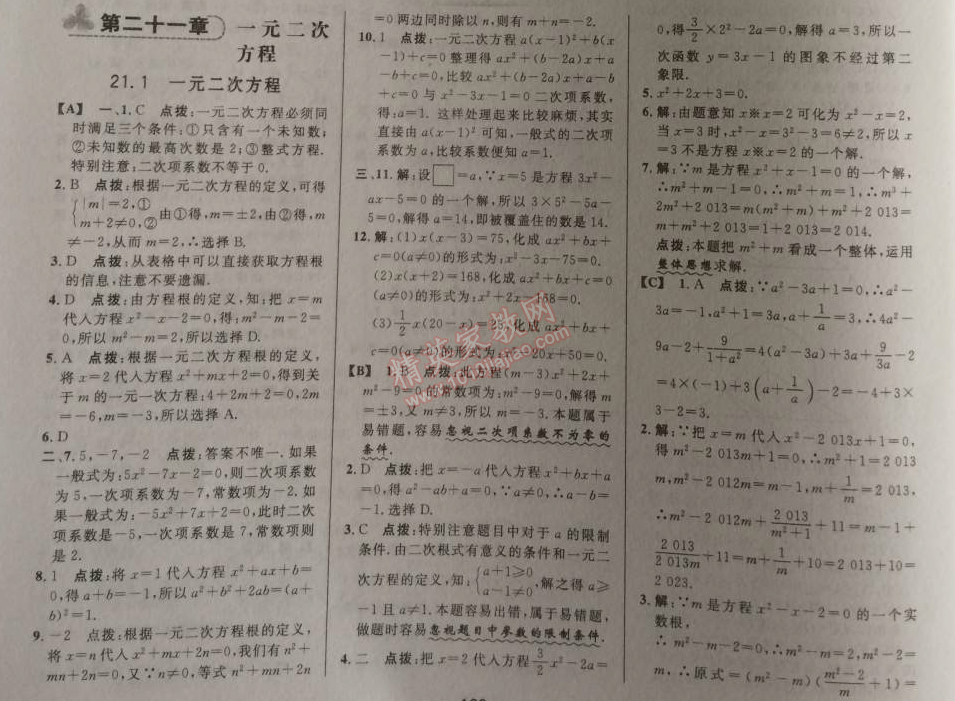 第二十一章 一元二次
方程
21.1 一元二次方程
【A】一、1. C 点拨:一元二次方程必须同
时满足三个条件:①只含有一个未知数;
②未知数的最高次数是2;③整式方程.
特别注意:二次项系数不等于0.
2. B 点拨:根据一元二次方程的定义,可得
{|m|=2,①
m+2≠0,② 由①得,m=±2,由②得,m
≠-2,从而m=2,∴选择B.
3. D 点拨:从表格中可以直接获取方程根
的信息,注意不要遗漏.
4. D 点拨:由方程根的定义,知:把x=m
代入方程x²-x-2=0,得:m²-m-2=
0,所以m²-m=2,所以选择D.
5. A 点拨:根据一元二次方程根的定义,
将x=2代入方程x²+mx+2=0,得到关
于m的一元一次方程:4+2m+2=0,2m
=-6,m=-3,所以选择A.
6. D
二、7. 5,-7,-2 点拨:答案不唯一.如果
一般式为:5x²-7x-2=0,则二次项系数
为5,一次项系数为-7,常数项为-2.如
果一般式为:-5x²+7x+2=0,此时二次
项系数是-5,一次项系数是7,常数项则
是2.
8. 1 点拨:将x=1代入方程x²+ax+b=
0,得a+b=-1,所以a²+b²+2ab=(a+
b)²=1.
9. -2 点拨:根据一元二次方程根的定义,
将x=n代入x²+mx+2n=0,我们有n²+
mn+2n=0,又∵n≠0,等式n²+mn+2n
=0两边同时除以n,则有m+n=-2.
10. 1 点拨:一元二次方程a(x-1)²+b(x
-1)+c=0整理得ax²+(b-2a)x+a
-b+c=0,比较ax²+(b-2a)x+a-b
+c=0与x²-3x-1=0二次项系数,
得:a=1.这样处理起来比较麻烦,其实
直接由a(x-1)²可知,一般式的二次项
系数为a,比较系数便知a=1.
三、11. 解:设□=a,∵x=5是方程3x²-
ax-5=0的一个解,所以3×5²-5a-
5=0,解得a=14,即被覆盖住的数是14.
12. 解:(1)x(x-3)=75,化成ax²+bx+
c=0(a≠0)的形式为:x²-3x-75=0.
(2)x(x+2)=168,化成ax²+bx+c=0
(a≠0)的形式为:x²+2x-168=0.
(3)1/2x(20-x)=25,化成ax²+bx+
c=0(a≠0)的形式为:x²-20x+50=0.
【B】1. B 点拨:此方程(m-3)x²+2x+
m²-9=0的常数项为:m²-9=0,解得m
=±3,又m≠3,所以m=-3.本题属于
易错题,容易忽视二次项系数不为零的
条件.
2. D 点拨:把x=-a代入方程x²+bx+a
=0,得a²-ab+a=0,∵a≠0,∴a-b=
-1.选择D.
3. C 点拨:特别注意题目中对于a的限制
条件.由二次根式有意义的条件和一元二
次方程的定义,知:{a+1≥0
a-1≠0,解之得a≥
-1且a≠1.本题容易出错,属于易错题,
做题时容易忽视题目中参数的限制条件.
4. 二 点拨:把x=2代入方程3/2x²-2a=
0,得3/2×2²-2a=0,解得a=3,所以一
次函数y=3x-1的图象不经过第二
象限.
5. x²+2x+3=0.
6. 解:由题意知x※x=2可化为x²-x=2,
当x=3时,x²-x=3²-3=6≠2,所以x
=3不是方程x※x=2的一个解.
7. 解:∵m是方程x²+x-1=0的一个解,
∴m²+m-1=0,∴m²+m=1,∴m³+
2m²+2 013=m(m²+m)+m²+2 013=
m+m²+2 013=1+2 013=2 014.
点拨:本题把m²+m看成一个整体,运用
整体思想求解.
【C】1. A 点拨:∵a²-3a+1=0,∴a²-
3a=-1,a²+1=3a,a+1/a=3,∴4a²-
9a-2+9/(1+a²)=4(a²-3a)+3a+9/3a-2
=4×(-1)+3(a+1/a)-2=-4+3×
3-2=3.
2. 解:∵把x=m代入x²-2 013x+1=0,
得m²-2 013m+1=0,∴m²+1=2 013
m,m²-2 012m=m-1,m+1/m=2 013,
∴m²-2 012m+2 013/(m²+1)+11=m-1+
2 013/2 013m+11=m+1/m+10=2 013+10=
2 023.
3. 解:∵m是方程x²-x-2=0的一个实
数根,
∴m²-m-2=0,∴m²-m=2,m²-2=
m,∴原式=(m²-m)((m²-2)/m+1)=
精英家教网